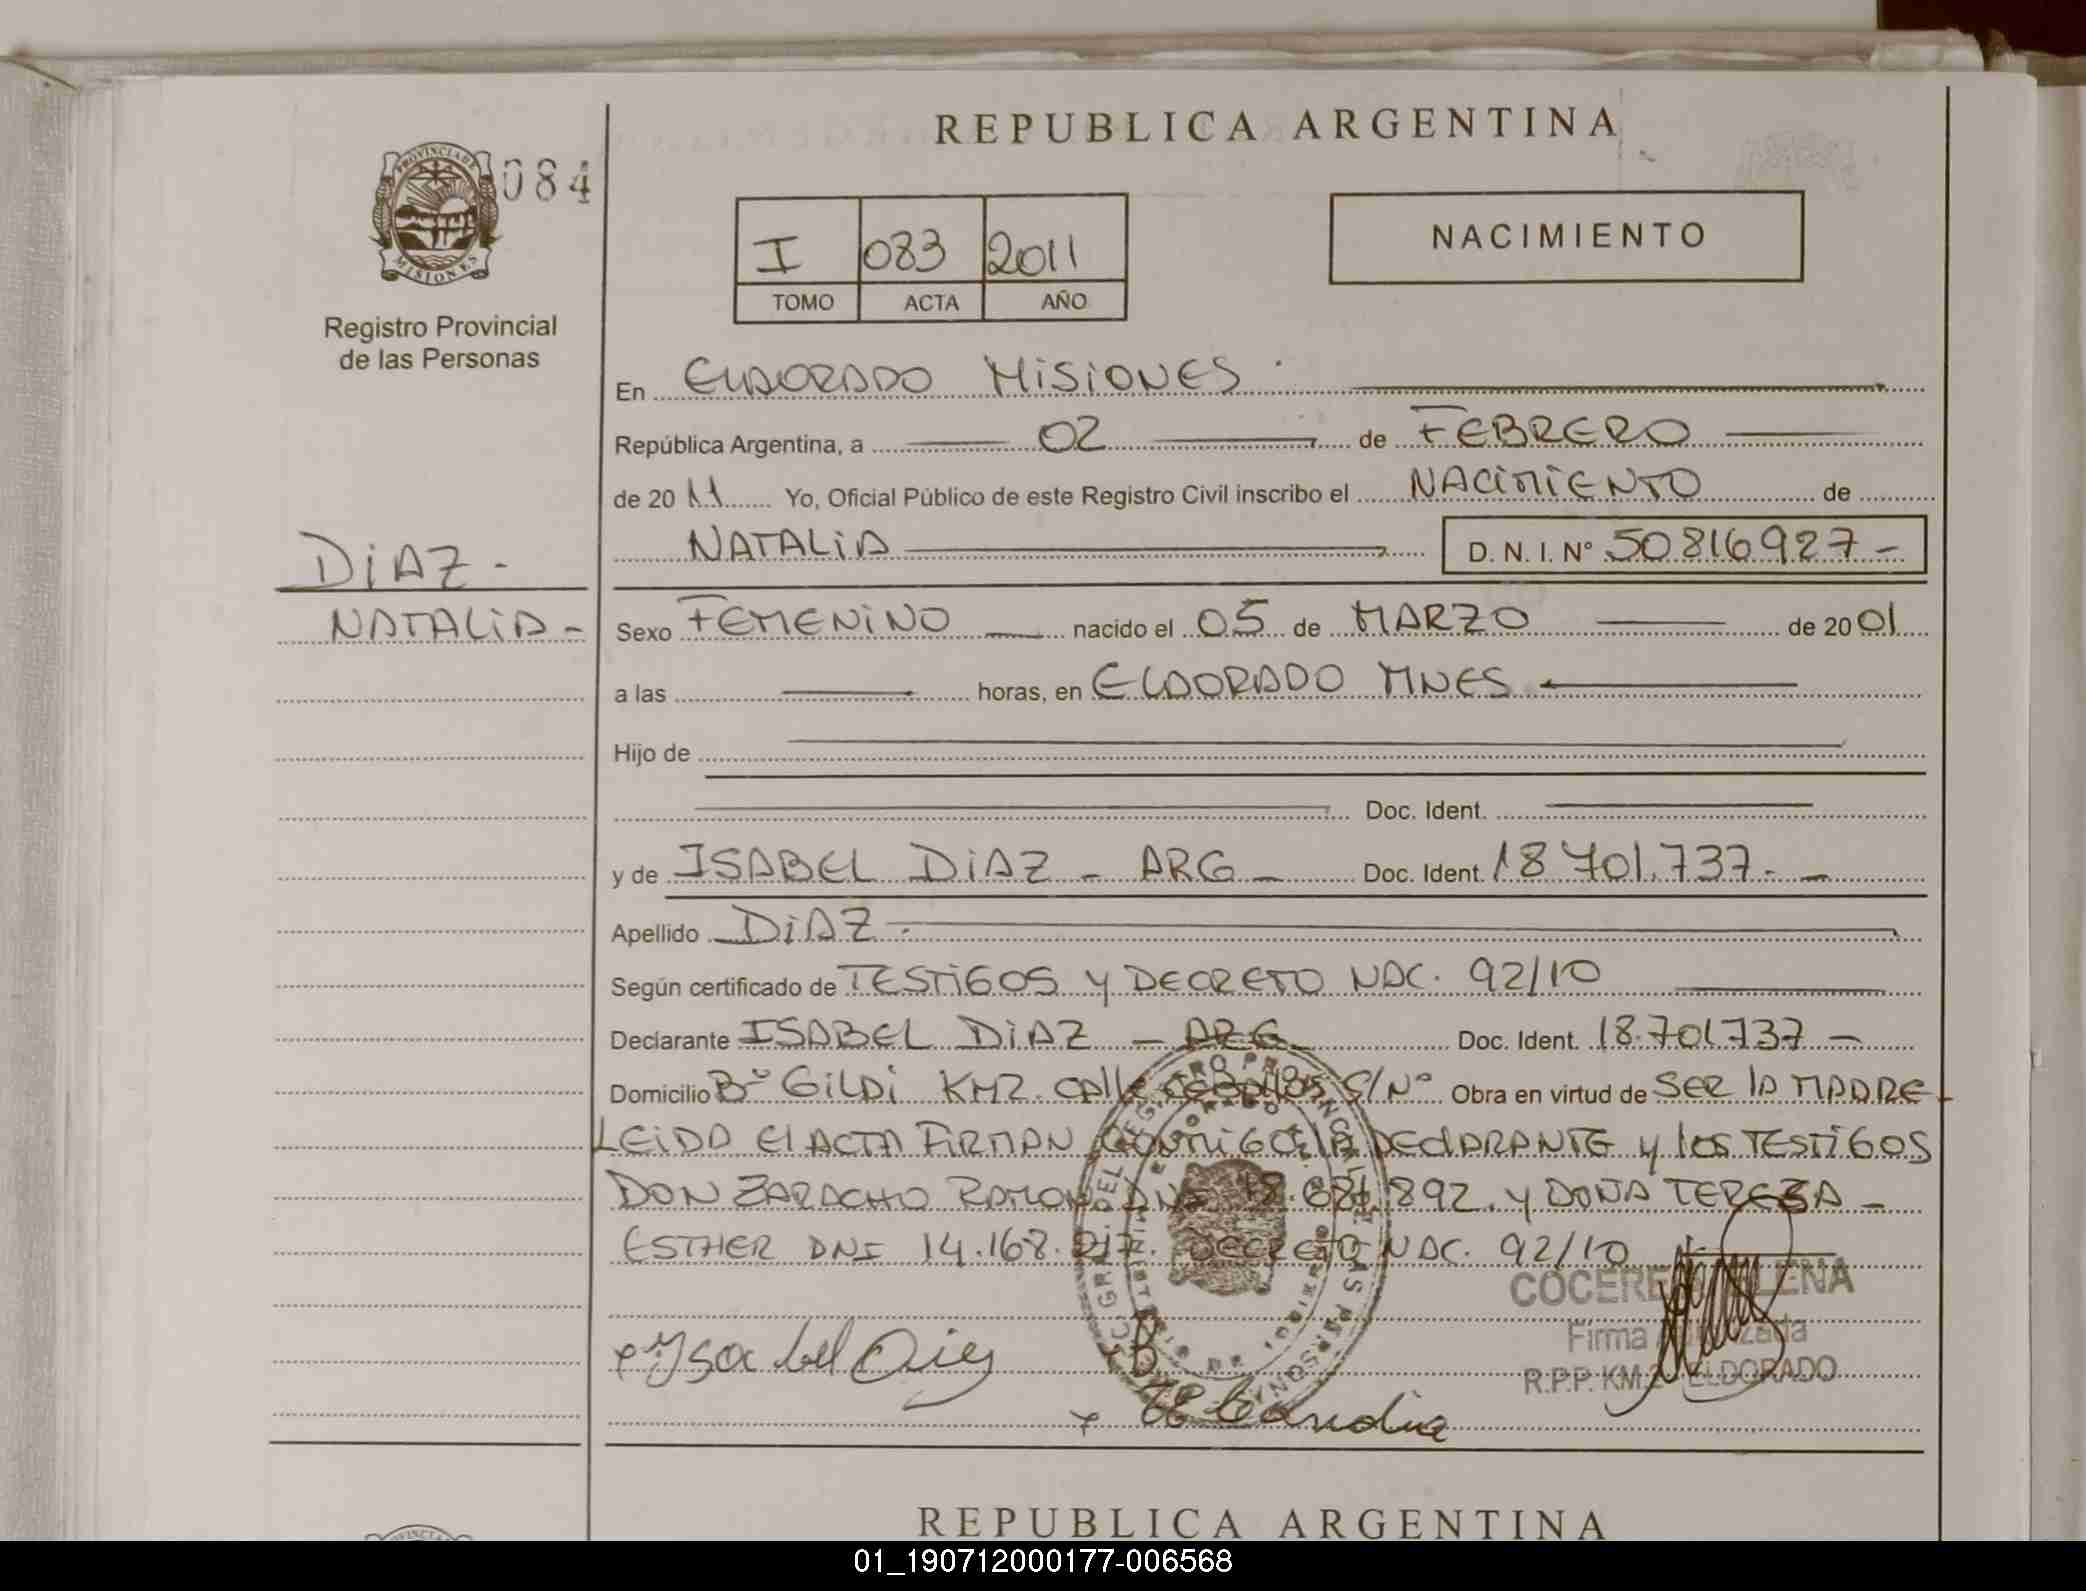 REPUBLICA ARGENTINA
PROVINCIA DE
MISIONES
084
Registro Provincial
de las Personas
I 083 2011
TOMO ACTA AÑO
NACIMIENTO
En ELDORADO MISIONES
República Argentina, a 02 de FEBRERO
de 2011 Yo, Oficial Público de este Registro Civil inscribo el NACIMIENTO de
NATALIA D. N. I. Nº 50816927-
DIAZ-
NATALIA-
Sexo FEMENINO nacido el 05 de MARZO de 2001
a las horas, en ELDORADO MNES
Hijo de
Doc. Ident.
y de ISABEL DIAZ - ARG - Doc. Ident. 18 701.737.-
Apellido DIAZ.
Según certificado de TESTIGOS Y DECRETO NAC. 92/10
Declarante ISABEL DIAZ - ARG Doc. Ident. 18.701737-
Domicilio Bº GILDI KM2. CAllE S/Nº Obra en virtud de SER lA MADRE-
LEIDA El ACTA FIRMAN CONMIGO lA DEClARANTE y los TESTIGOS
DON ZARACHO RAMON DNI 18. .892. y DOÑA TERESA-
ESTHER DNI 14.168. DECRETO NAC. 92/10
ELENA
Firma Autorizada
R.P.P. KM.2 ELDORADO
Ysabel Diez
REPUBLICA ARGENTINA
01_190712000177-006568